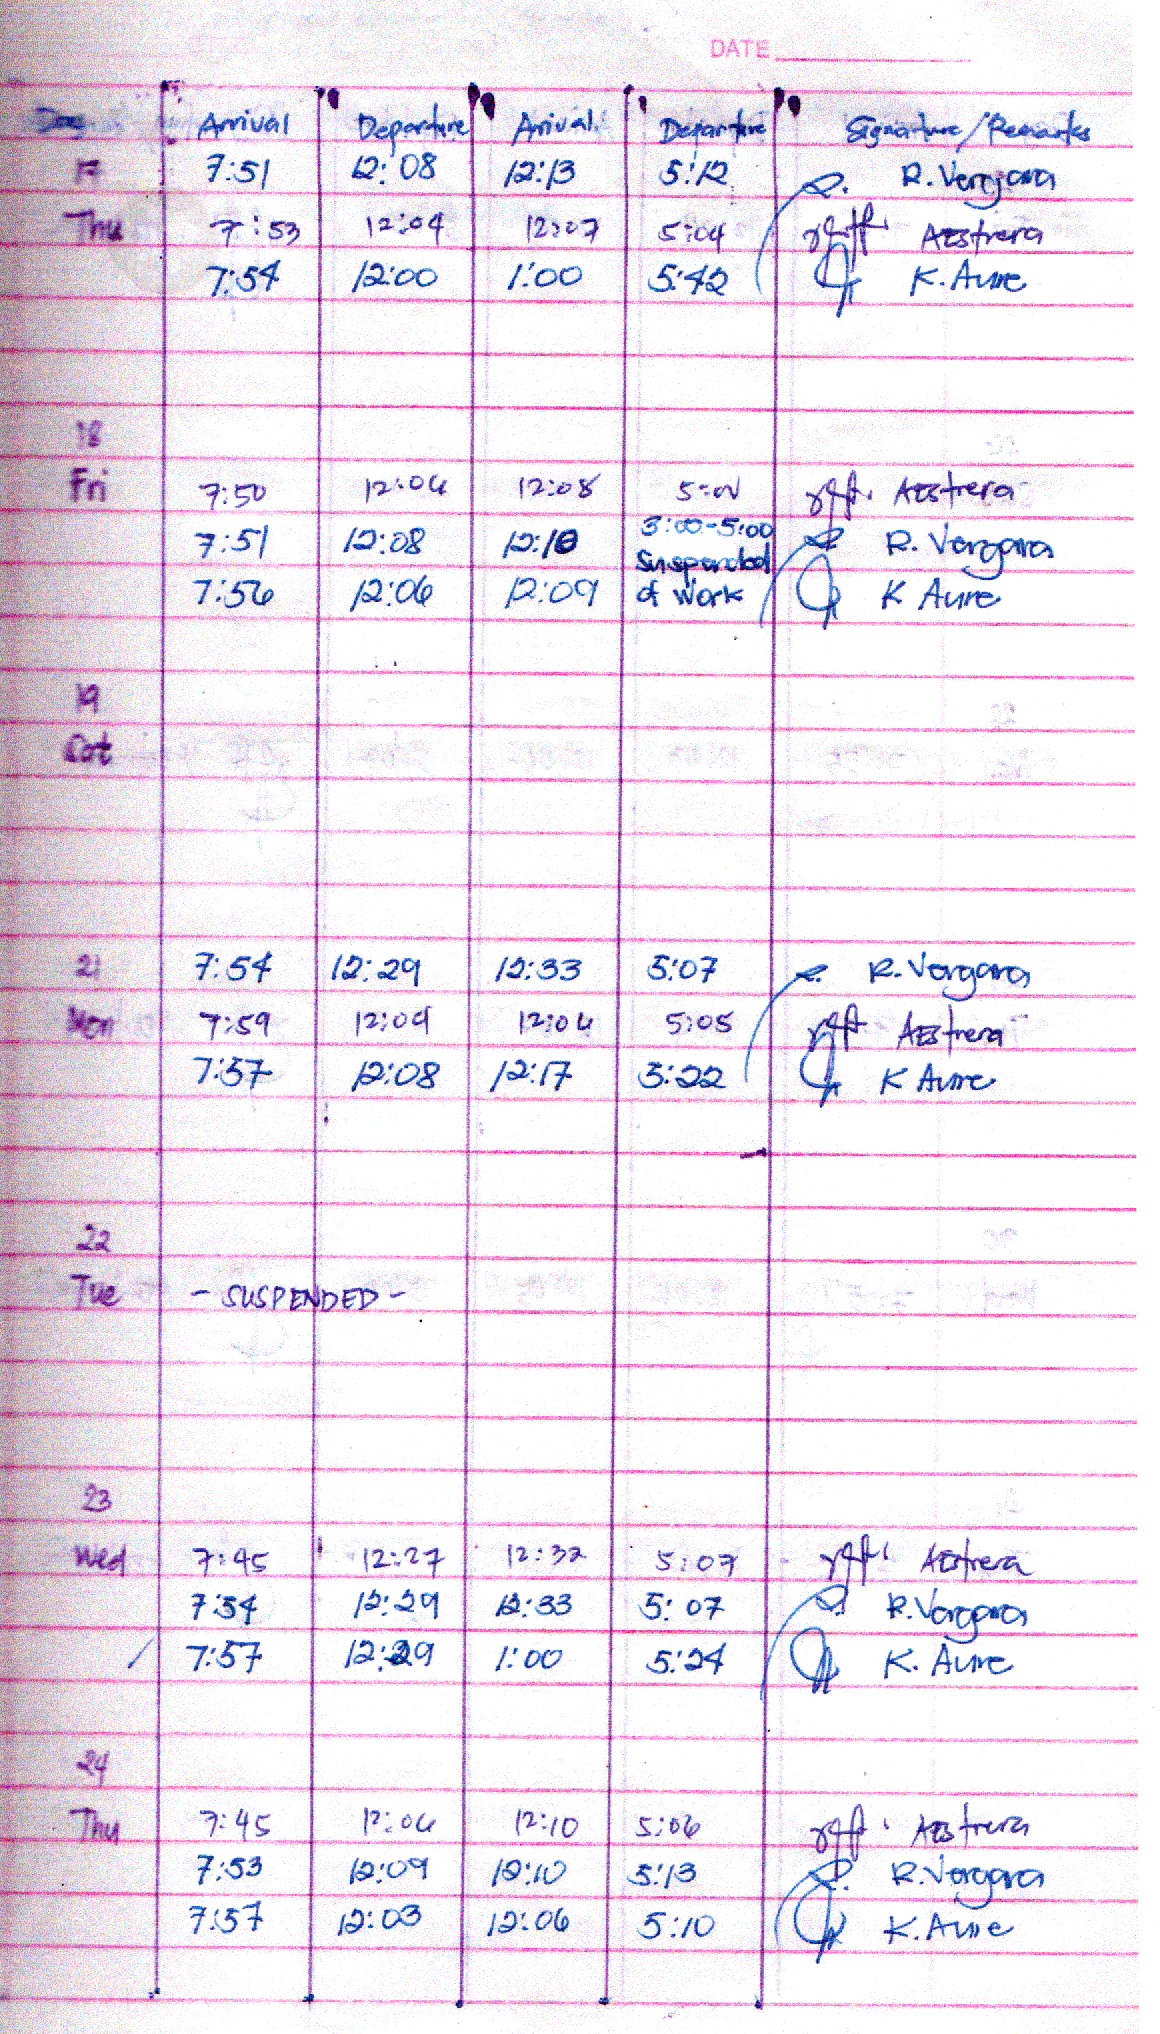 DATE
Day Arrival Departure Arrival Departure Signature/Remarks
17 7:51 12:08 12:13 5:12 R. Vergara
Thu 7:53 12:04 12:07 5:04 AEstrera
7:54 12:00 1:00 5:42 K. Aure
18
Fri 7:50 12:04 12:08 AEstrera
7:51 12:08 12:10 3:00-5:00 R. Vergara
Suspended
7:56 12:06 12:09 of Work K Aure
19
Sat
21 7:54 12:29 12:33 5:07 R. Vergara
Mon 7:59 12:04 5:05 AEstrera
7:57 12:08 12:17 5:22 K Aure
22
Tue - SUSPENDED -
23
Wed 7:45 12:27 12:32 5:07 AEstrera
7:54 12:29 12:33 5:07 R. Vergara
7:57 12:29 1:00 5:24 K. Aure
24
Thu 7:45 12:06 12:10 5:06 AEstrera
7:53 12:09 12:10 5:13 R. Vergara
7:57 12:03 12:06 5:10 K. Aure